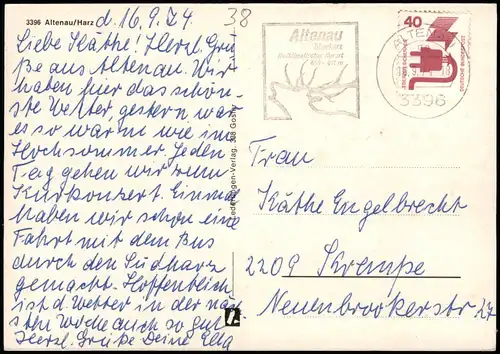 3396 Altenau/Harz d. 16.9.74
38
Liebe Käthe! Herzl. Grü-
ße aus Altenau. Wir
haben hier das schön-
ste Wetter, gestern war
es so warm wie im
Hochsommer. Jeden
Tag gehen wir zum
Kurkonzert. Einmal
haben wir schon eine
Fahrt mit dem Bus
durch den Südharz
gemacht. Hoffentlich
ist d. Wetter in der näch
sten Woche auch so gut
Herzl. Grüße Deine Ella
Altenau
Oberharz
Heilklimatischer Kurort
ALTENAU
3396
40
DEUTSCHE BUNDESPOST
Frau
Käthe Engelbrecht
2209 Krempe
Neuenbrookerstr. 27